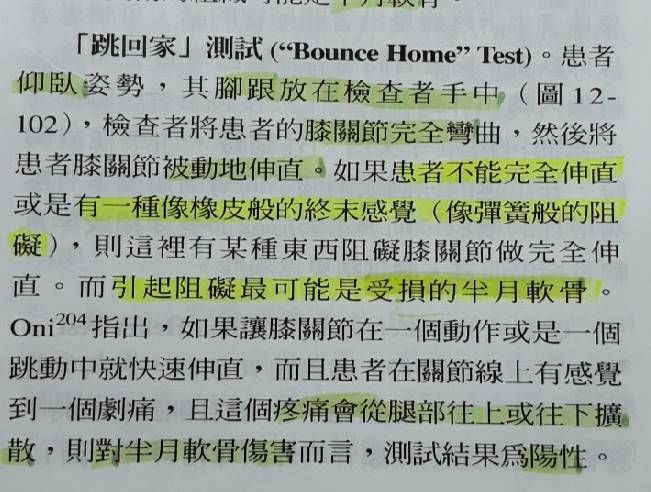 「跳回家」測試 (“Bounce Home” Test)。患者
仰臥姿勢，其腳跟放在檢查者手中（圖 12-
102），檢查者將患者的膝關節完全彎曲，然後將
患者膝關節被動地伸直。如果患者不能完全伸直
或是有一種像橡皮般的終末感覺（像彈簧般的阻
礙），則這裡有某種東西阻礙膝關節做完全伸
直。而引起阻礙最可能是受損的半月軟骨。
Oni²⁰⁴指出，如果讓膝關節在一個動作或是一個
跳動中就快速伸直，而且患者在關節線上有感覺
到一個劇痛，且這個疼痛會從腿部往上或往下擴
散，則對半月軟骨傷害而言，測試結果為陽性。